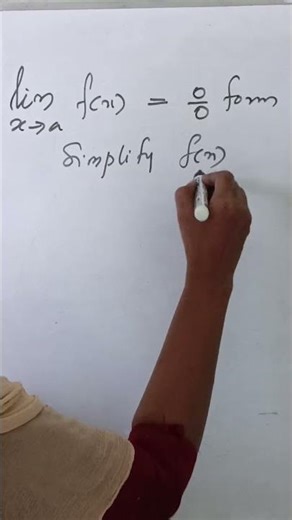 lim f(x) = 0/0 form
x→a
Simplify f(x)